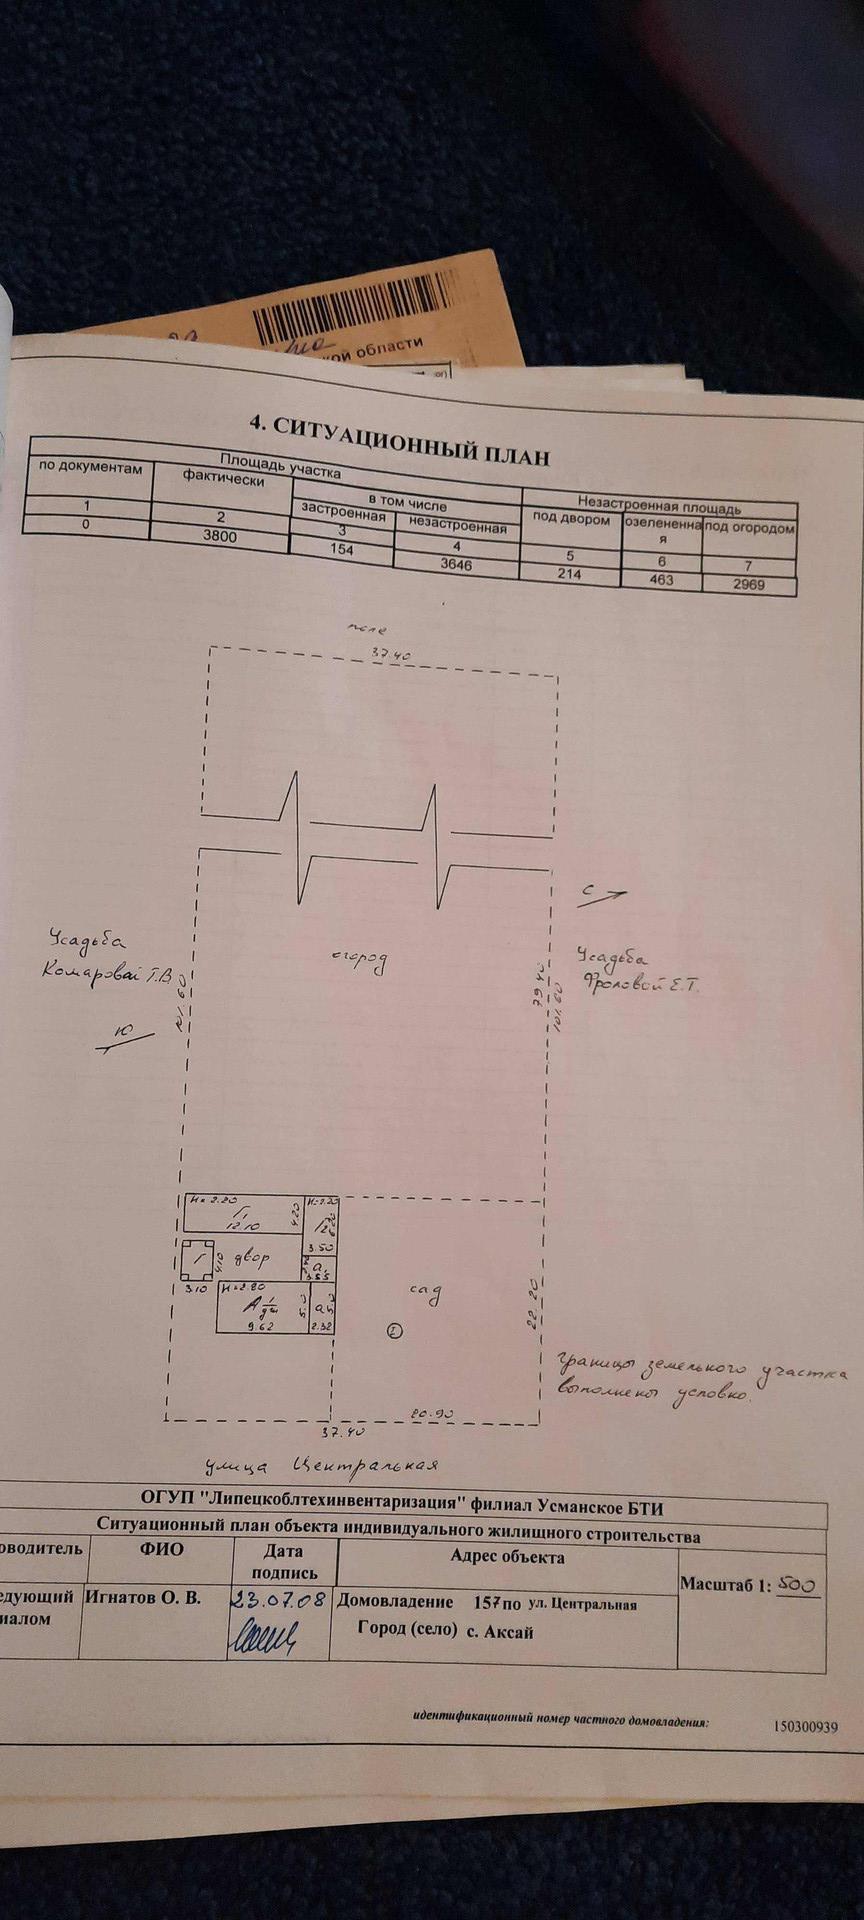 кой области
4. СИТУАЦИОННЫЙ ПЛАН
Площадь участка
по документам
фактически
в том числе
Незастроенная площадь
застроенная
незастроенная
под двором
озелененная
под огородом
1
2
3
4
5
6
7
0
3800
154
3646
214
463
2969
поле
37.40
С
Усадьба
Комаровой Т.В
огород
Усадьба
Фроловой Е.Т.
101.60
79.40
101.60
Ю
H=2.20
Г₁
12.10
4.20
H=2.20
Г2
6.20
3.50
Г
4.10
3.10
двор
а₁
3.55
H=2.80
А 1/дш
9.62
5.10
а
2.32
сад
I
22.20
Границы земельного участка
выполнены условно.
20.90
37.40
улица Центральная
ОГУП "Липецкоблтехинвентаризация" филиал Усманское БТИ
Ситуационный план объекта индивидуального жилищного строительства
оводитель
ФИО
Дата
подпись
Адрес объекта
Масштаб 1: 500
едующий
иалом
Игнатов О. В.
23.07.08
Домовладение 157 по ул. Центральная
Город (село) с. Аксай
идентификационный номер частного домовладения: 150300939